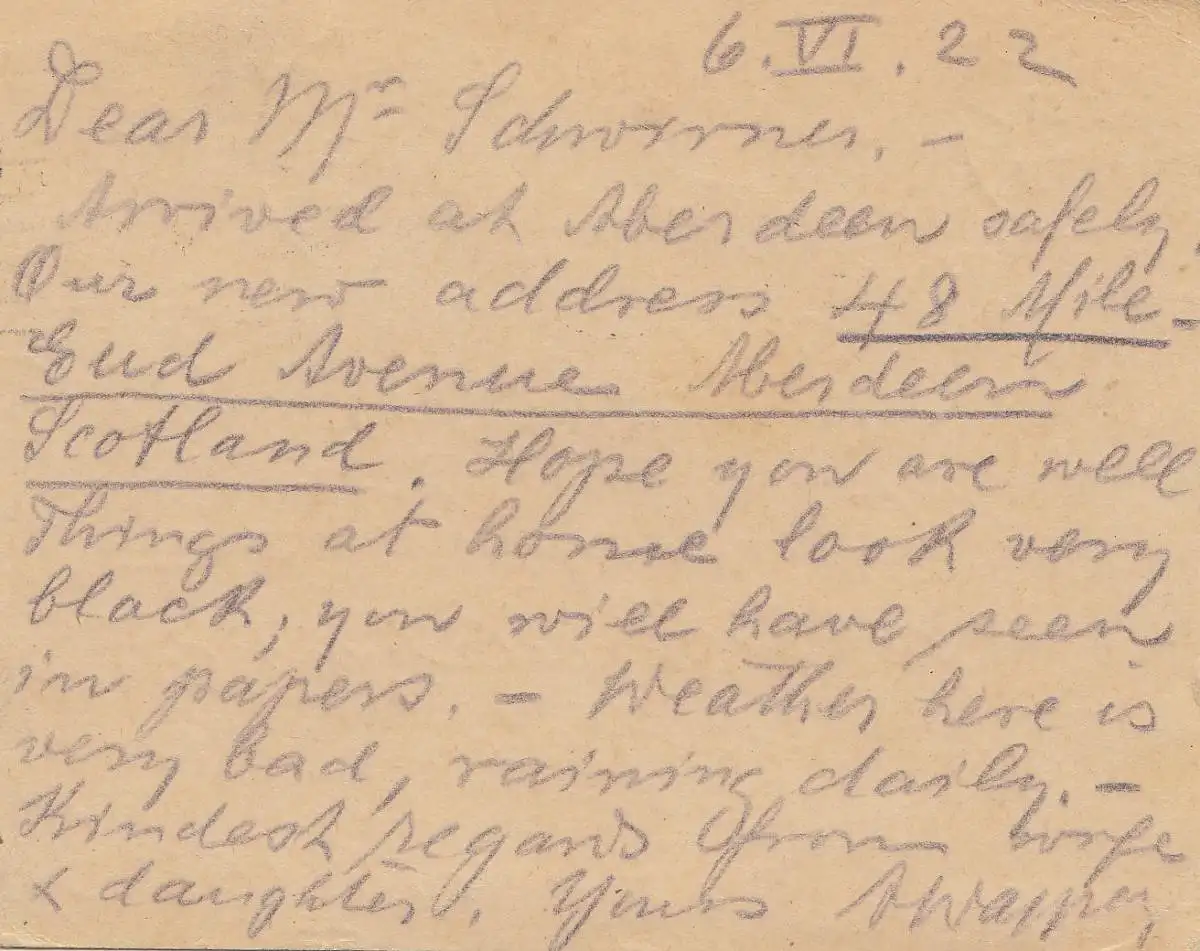 6.VI.22
Dear Mr Schwirner. -
Arrived at Aberdeen safely.
Our new address 48 Mile-
End Avenue Aberdeen
Scotland. Hope you are well
Things at home look very
black, you will have seen
in papers. - Weather here is
very bad, raining daily. -
Kindest regards from wife
& daughter. Yours